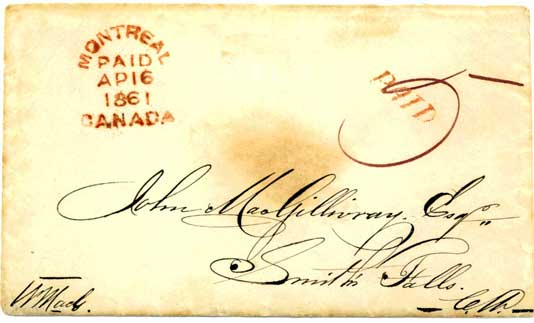 MONTREAL
PAID
AP16
1861
CANADA
PAID
5
John MacGillivray. Esqr
Smith's Falls.
C.W.